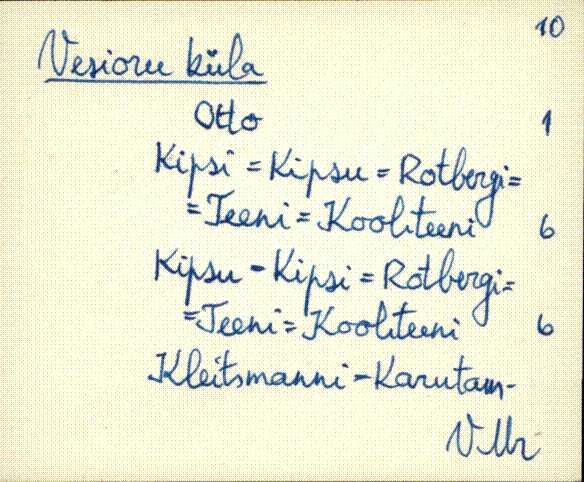 10
Vesioru küla
Otto 1
Kipsi = Kipsu = Rotbergi =
= Teeni = Kooliteeni 6
Kipsu - Kipsi = Rotbergi =
= Teeni = Kooliteeni 6
Kleitsmanni - Karutam-